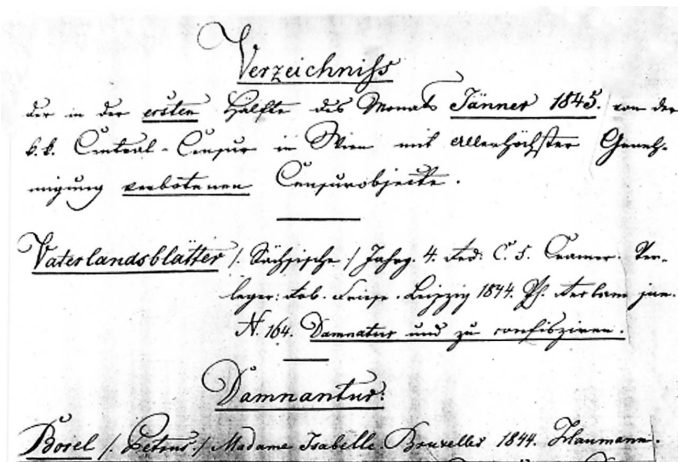 Verzeichniß
der in der ersten Hälfte des Monats Jänner 1845. von der
k. k. Central-Censur in Wien mit Allerhöchster Geneh-
migung verbotenen Censurobjecte.
Vaterlandsblätter /. Sächsische ./ Jahrg. 4. Red: C. Cramer. Ver-
leger: Rob. Friese. Leipzig 1844.
N. 164. Damnatur und zu confisziren.
Damnantur:
Borel /. Petrus ./ Madame Isabelle Bruxelles 1844. Haumann.